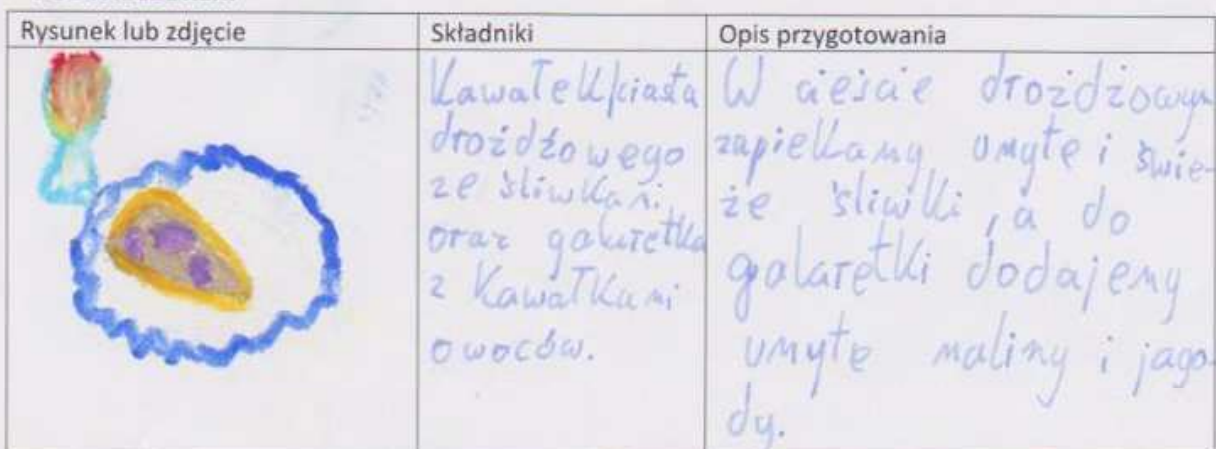 Rysunek lub zdjęcie
Składniki
Opis przygotowania
Kawałek ciasta
drożdżowego
ze śliwkami
oraz galaretka
z kawałkami
owoców.
W cieście drożdżowym
zapiekamy umyte i świe-
że śliwki, a do
galaretki dodajemy
umyte maliny i jago-
dy.